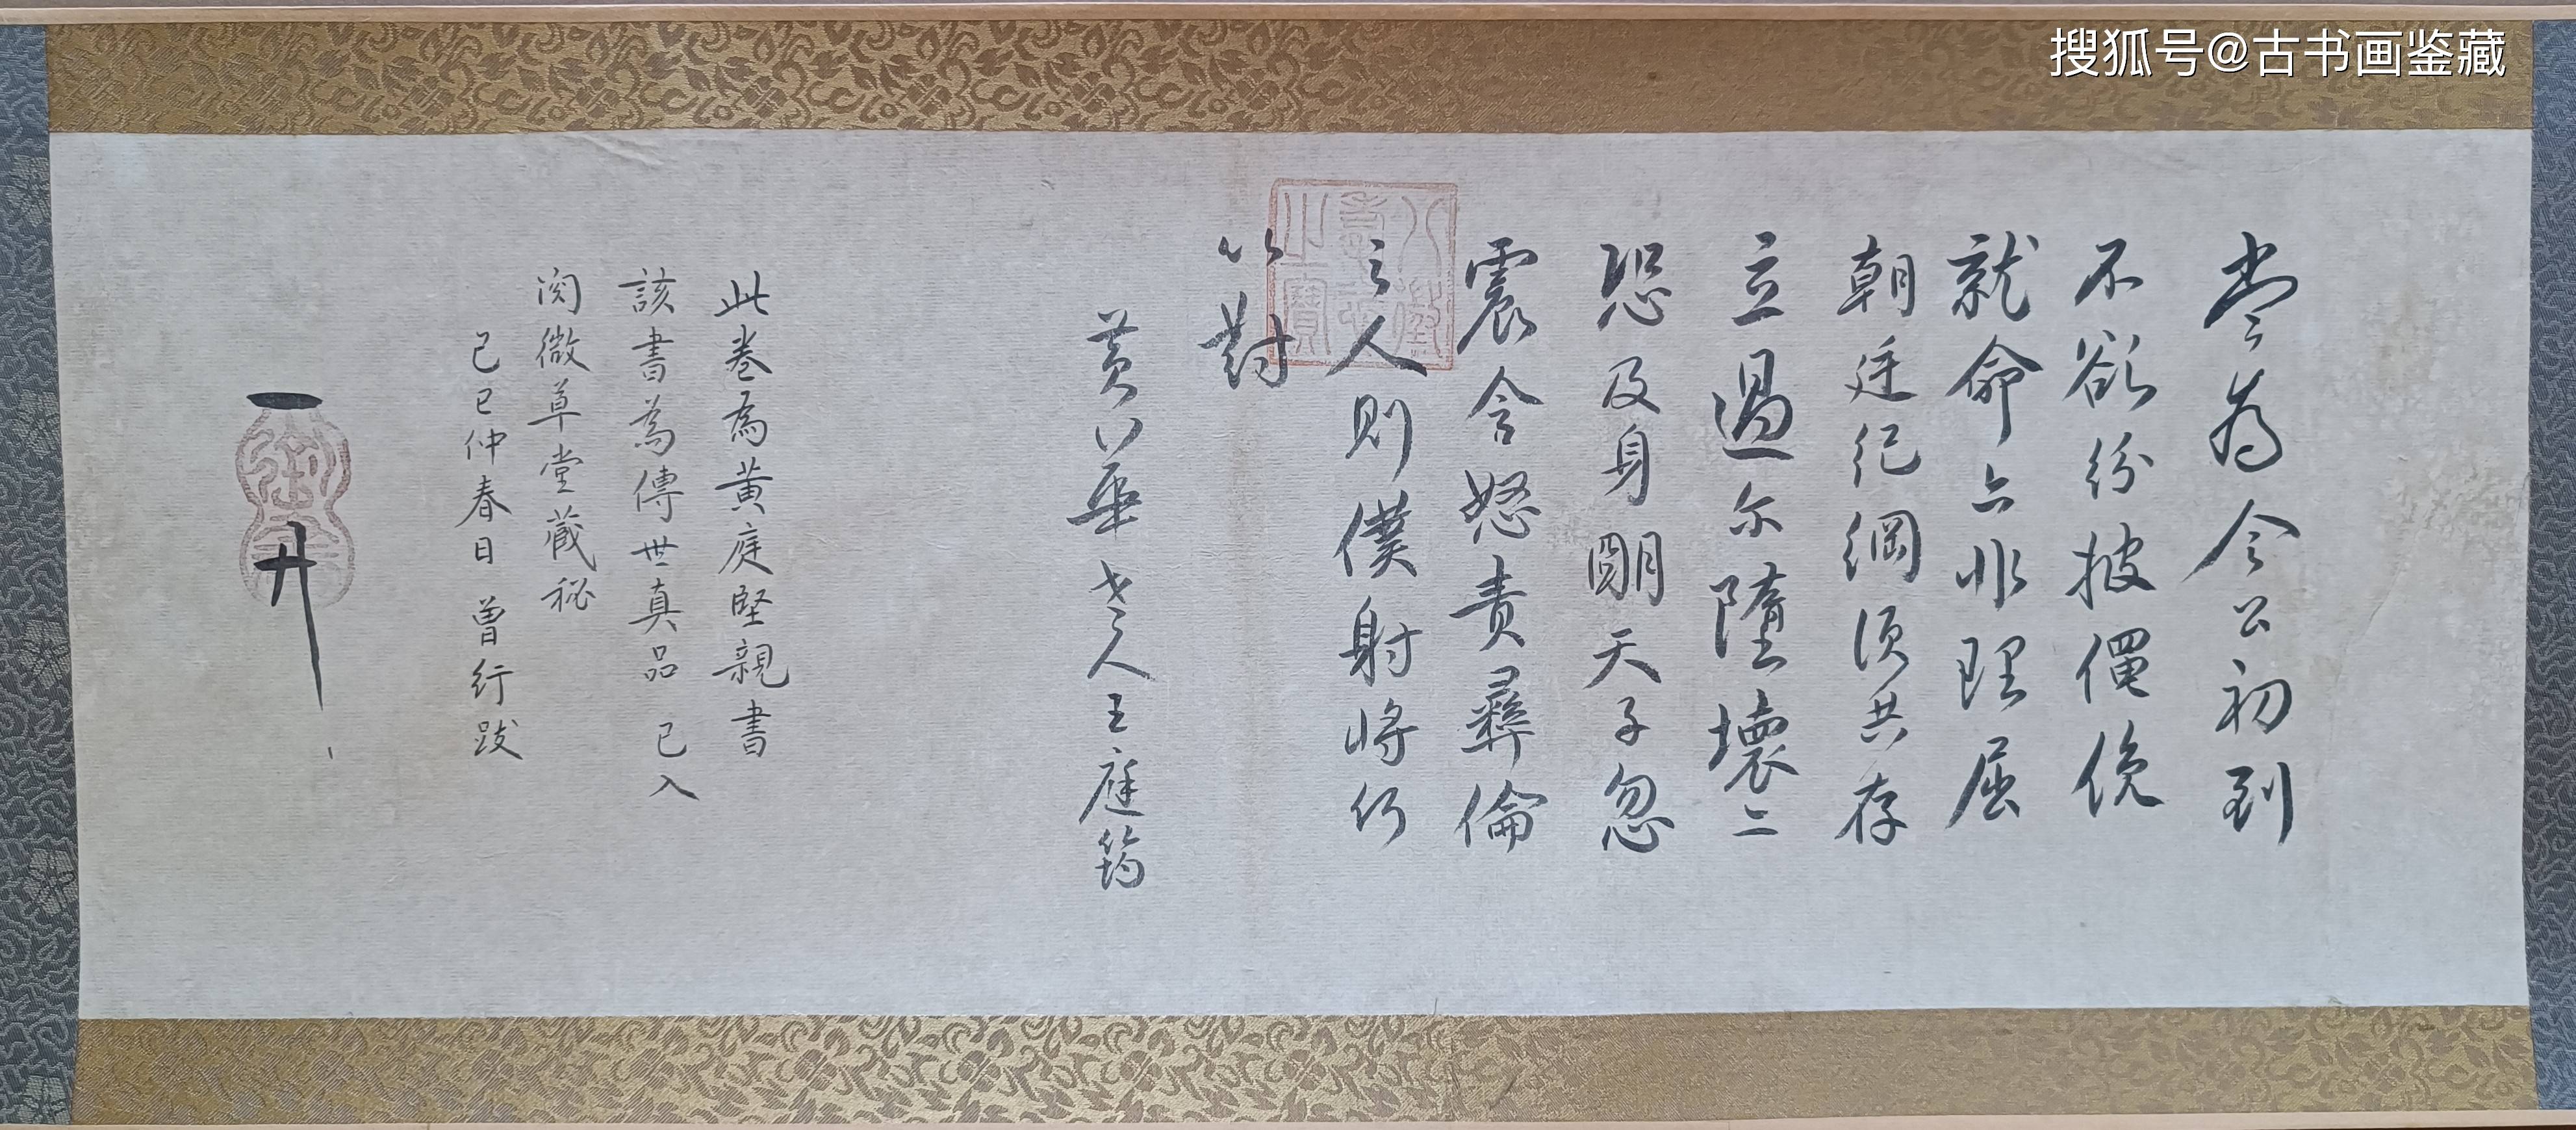 搜狐号@古书画鉴藏
为令公初到
不欲纷披僶俛
就命亦非理屈
朝廷纪綱須共存
立過尔隳壞二
恐及身明天子忽
震含怒責彝倫
之人則僕射將何
以對
黄華老人王庭筠
此卷為黄庭堅親書
該書為傳世真品 已入
閲微草堂藏秘
己巳仲春日 曾行跋
八徵耄念之寶